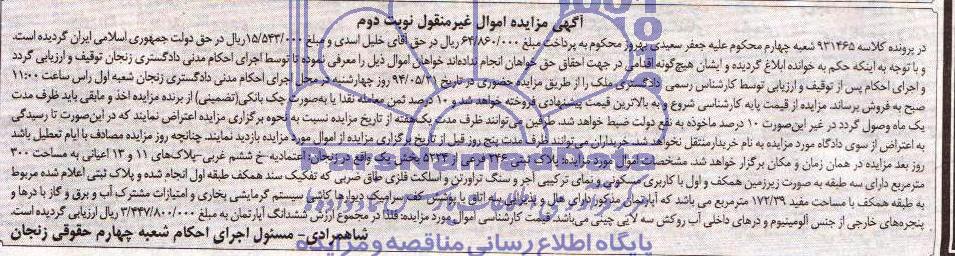 آگهی مزایده اموال غیرمنقول نوبت دوم
در پرونده کلاسه ۹۳۱۴۶۵ شعبه چهارم محکوم علیه جعفر سعیدی بهروز محکوم به پرداخت مبلغ ۶۴/۸۶۰/۰۰۰ ریال در حق آقای خلیل اسدی و مبلغ ۱۵/۵۴۳/۰۰۰ریال در حق دولت جمهوری اسلامی ایران گردیده است.
و با توجه به اینکه حکم به خوانده ابلاغ گردیده و ایشان هیچ‌گونه اقدامی در جهت احقاق حق خواهان انجام نداده‌اند خواهان اموال ذیل را معرفی نموده تا توسط اجرای احکام مدنی دادگستری زنجان توقیف و ارزیابی گردد
و اجرای احکام پس از توقیف و ارزیابی توسط کارشناس رسمی دادگستری ملک را از طریق مزایده حضوری در تاریخ ۹۴/۰۵/۲۱ روز چهارشنبه در محل اجرای احکام مدنی دادگستری زنجان شعبه اول راس ساعت ۱۱:۰۰
صبح به فروش برساند. مزایده از قیمت پایه کارشناسی شروع و به بالاترین قیمت پیشنهادی فروخته خواهد شد و ۱۰ درصد ثمن معامله نقدا یا به‌صورت چک بانکی(تضمینی) از برنده مزایده اخذ و مابقی باید ظرف مدت
یک ماه وصول گردد در غیر این‌صورت ۱۰ درصد ماخوذه به نفع دولت ضبط خواهد شد. طرفین می‌توانند ظرف مدت یک‌هفته از تاریخ مزایده نسبت به نحوه برگزاری مزایده اعتراض نمایند که در این‌صورت تا رسیدگی
به اعتراض از سوی دادگاه مورد مزایده به نام خریدار منتقل نخواهد شد. خریداران می‌توانند ظرف مدت پنج روز قبل از تاریخ برگزاری مزایده از اموال مورد مزایده بازدید نمایند. چنانچه روز مزایده مصادف با ایام تعطیل باشد
روز بعد مزایده در همان زمان و مکان برگزار خواهد شد. مشخصات اموال مورد مزایده: پلاک ثبتی ۲۴۶ فرعی از ۵۲۲۴ بخش یک واقع در زنجان: اعتمادیه-خ ششم غربی-پلاک‌های ۱۱ و ۱۳ اعیانی به مساحت ۳۰۰
مترمربع دارای سه طبقه به صورت زیرزمین همکف و اول با کاربری مسکونی و نمای ترکیبی آجر و سنگ تراورتن و اسکلت فلزی طاق ضربی که تفکیک سند همکف طبقه اول انجام شده و پلاک ثبتی اعلام شده مربوط
به طبقه همکف با مساحت مفید ۱۷۲/۳۹ مترمربع می باشد که آپارتمان مذکور دارای هال و پذیرایی اتاق با پوشش کف سرامیک دیوارها کاشی سیستم گرمایشی بخاری و امتیازات مشترک آب و برق و گاز با درها و
پنجره‌های خارجی از جنس آلومینیوم و درهای داخلی آب روکش سه لایی چینی می‌باشد. قیمت کارشناسی اموال مورد مزایده: فلذا در مجموع ارزش ششدانگ آپارتمان به مبلغ ۳/۴۴۷/۸۰۰/۰۰۰ ریال ارزیابی گردیده است.
شاهمرادی- مسئول اجرای احکام شعبه چهارم حقوقی زنجان
پایگاه اطلاع رسانی مناقصه و مزایده